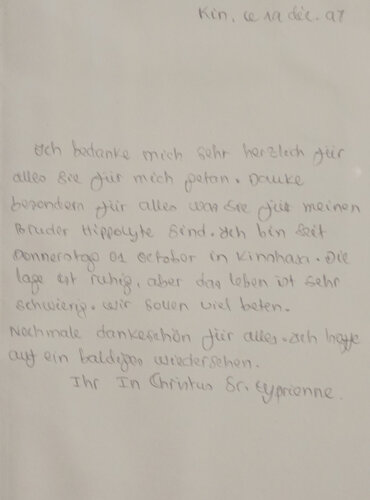 Kin, ce 12 déc. 97
Ich bedanke mich sehr herzlich für
alles Sie für mich petan. Danke
besondern für alles was Sie für meinen
Bruder Hippolyte Sind. Ich bin seit
Donnerstag 01 October in Kinshasa. Die
lage ist ruhig, aber das leben ist sehr
schwierig. wir sollen viel beten.
Nochmale dankeschön für alles. Ich hoffe
auf ein baldiges wiedersehen.
Ihr In Christus Sr. Cyprienne.